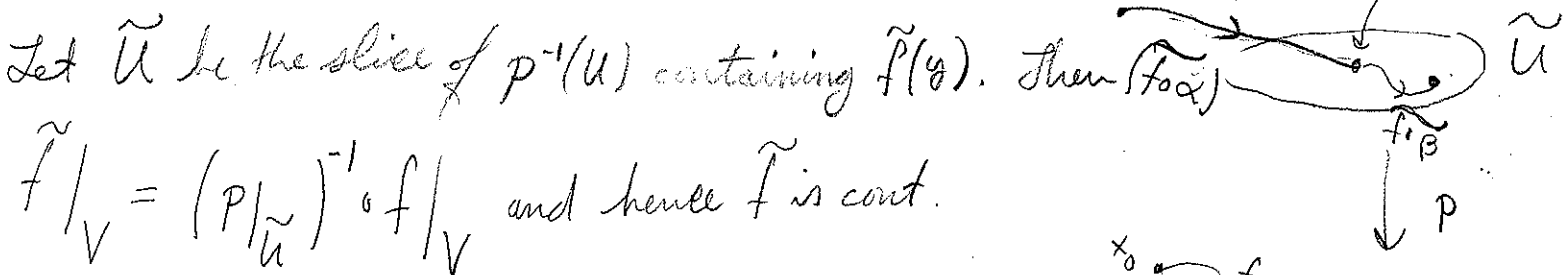 Let Ũ be the slice of p⁻¹(U) containing f̃(y). Then
(f∘α)~
Ũ
(f∘β)~
f̃|_V = (p|_Ũ)⁻¹ ∘ f|_V and hence f̃ is cont.
p
x₀
f